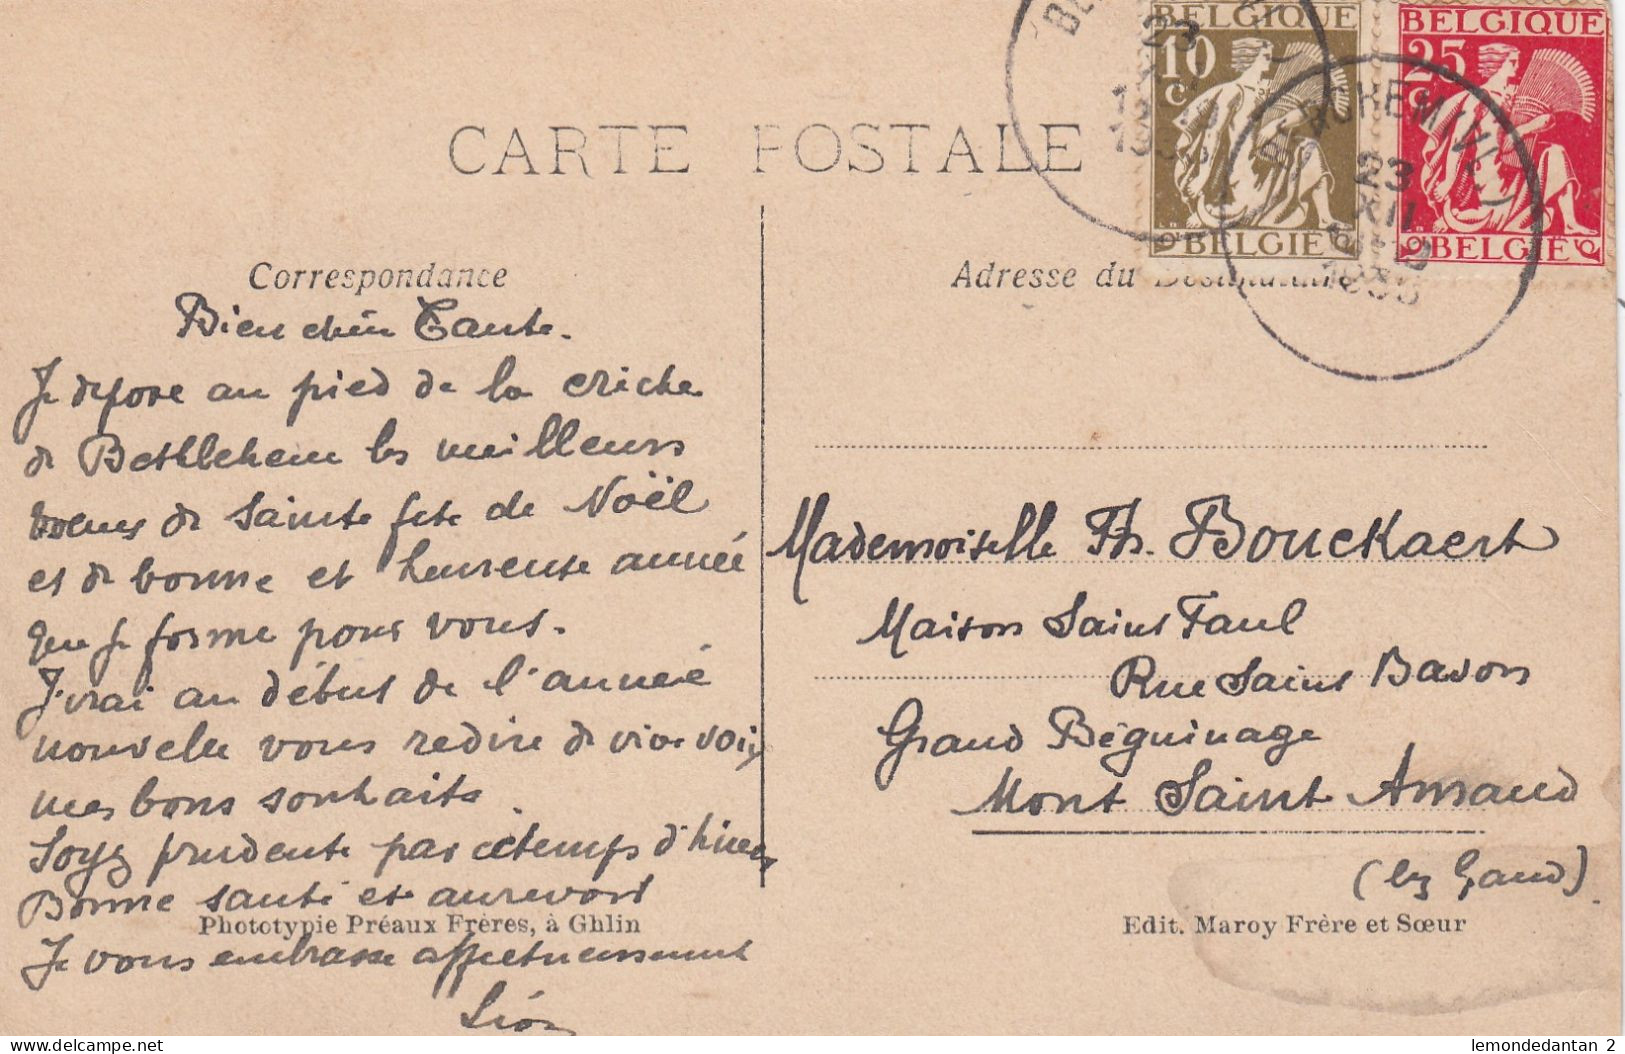 CARTE POSTALE
BELGIQUE
10
c
BELGIË
BELGIQUE
25
c
BELGIË
23
23
XII
Correspondance
Bien chère Tante.
Je dépose au pied de la crèche
de Bethlehem les meilleurs
voeux de sainte fête de Noël
et de bonne et heureuse année
que je forme pour vous.
J'irai au début de l'année
nouvelle vous redire de vive voix
mes bons souhaits.
Soyez prudente par ce temps d'hiver
Bonne santé et au revoir
Je vous embrasse affectueusement
Léon
Phototypie Préaux Frères, à Ghlin
Adresse du Destinataire
Mademoiselle Th. Bouckaert
Maison Saint Paul
Rue Saint Bavon
Grand Béguinage
Mont Saint Amand
(lez Gand).
Edit. Maroy Frère et Sœur
delcampe.net
lemondedantan 2